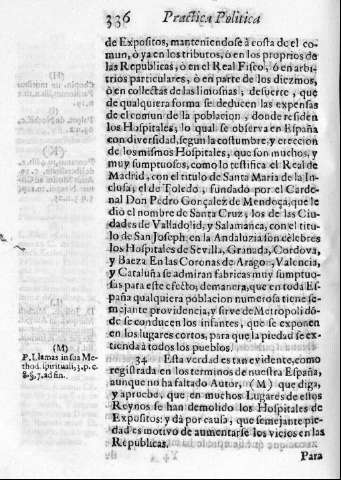 336 Practica Politica
de Expositos, manteniendose à costa de el co-
mun, ò ya en los tributos, ò en los proprios de
las Republicas, ò en el Real Fisco, ò en arbi-
trios particulares, ò en parte de los diezmos,
ò en collectas de las limosnas; desuerte, que
de qualquiera forma se deducen las expensas
de el comun de la poblacion, donde residen
los Hospitales; lo qual se observa en España
con diversidad, segun la costumbre, y ereccion
de los mismos Hospitales, que son muchos, y
muy sumptuosos, como lo testifica el Real de
Madrid, con el titulo de Santa Maria de la In-
clusa; el de Toledo, fundado por el Carde-
nal Don Pedro Gonçalez de Mendoça, que le
diò el nombre de Santa Cruz; los de las Ciu-
dades de Valladolid, y Salamanca, con el titu-
lo de San Joseph, en la Andaluzia son celebres
los Hospitales de Sevilla, Granada, Cordova,
y Baeza. En las Coronas de Aragon, Valencia,
y Cataluña se admiran fabricas muy sumptuo-
sas para este efecto; demanera, que en toda Es-
paña qualquiera poblacion numerosa tiene se-
mejante providencia, y sirve de Metropoli dó-
de se conducen los infantes, que se exponen
en los lugares cortos, para que la piedad se ex-
tienda à todos los pueblos.
34 Esta verdad es tan evidente, como
registrada en los terminos de nuestra España,
aunque no ha faltado Autor, (M) que diga,
y apruebe, que en muchos Lugares de estos
Reynos se han demolido los Hospitales de
Expositos: y dà por causa, que semejante pie-
dad es motivo de aumentarse los vicios en las
Republicas.
Para
(M)
P. Llamas in sua Me-
thod. spirituali, 3. p. c.
8. §. 7. ad fin.